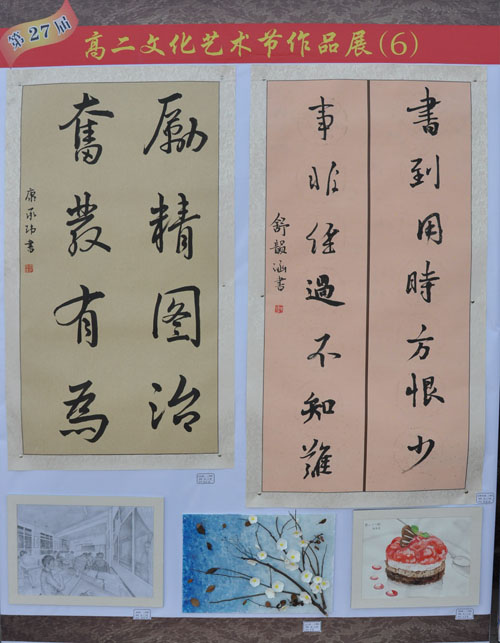 第27届
高二文化艺术节作品展(6)
励精图治
奮發有為
康
書
書到用時方恨少
事非经過不知難
舒韻涵書